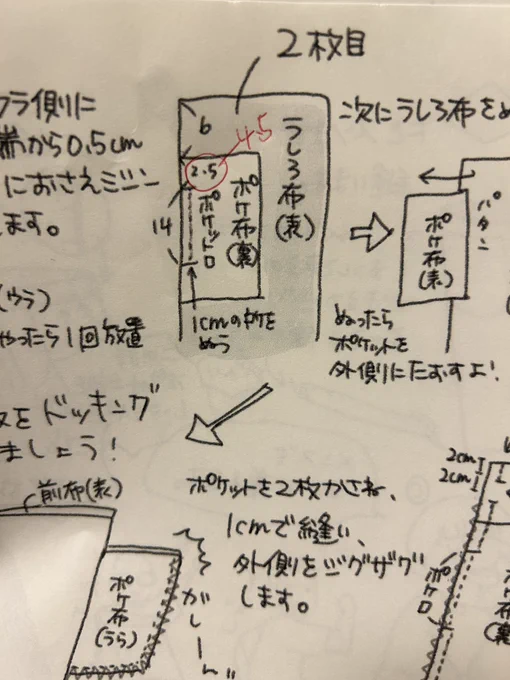 2枚目
ウラ側に
端から0.5cm
におさえミシン
ます。
(ウラ)
やったら1回放置
6
4.5
2.5
14
ポケット口
ポケ布(裏)
うしろ布(表)
1cmのみを
ぬう
次にうしろ布をぬ
パタン
ポケ布(表)
ぬったら
ポケットを
外側にたおすよ!
をドッキング
ましょう!
前布(表)
ポケ布(うら)
がしーん
ポケットを2枚かさね、
1cmで縫い、
外側をジグザグ
します。
2cm
2cm
ポケ口
ポケ布(裏)